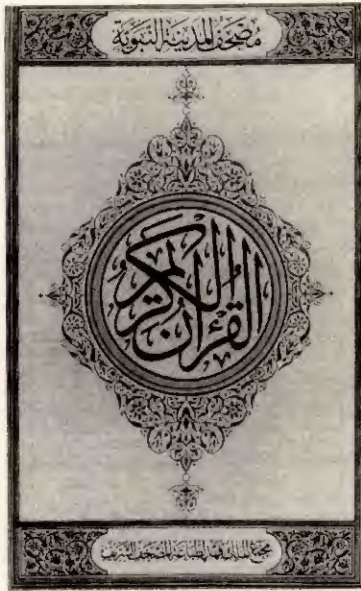 مصحف المدينة النبوية
القرآن الكريم
مجمع الملك فهد لطباعة المصحف الشريف